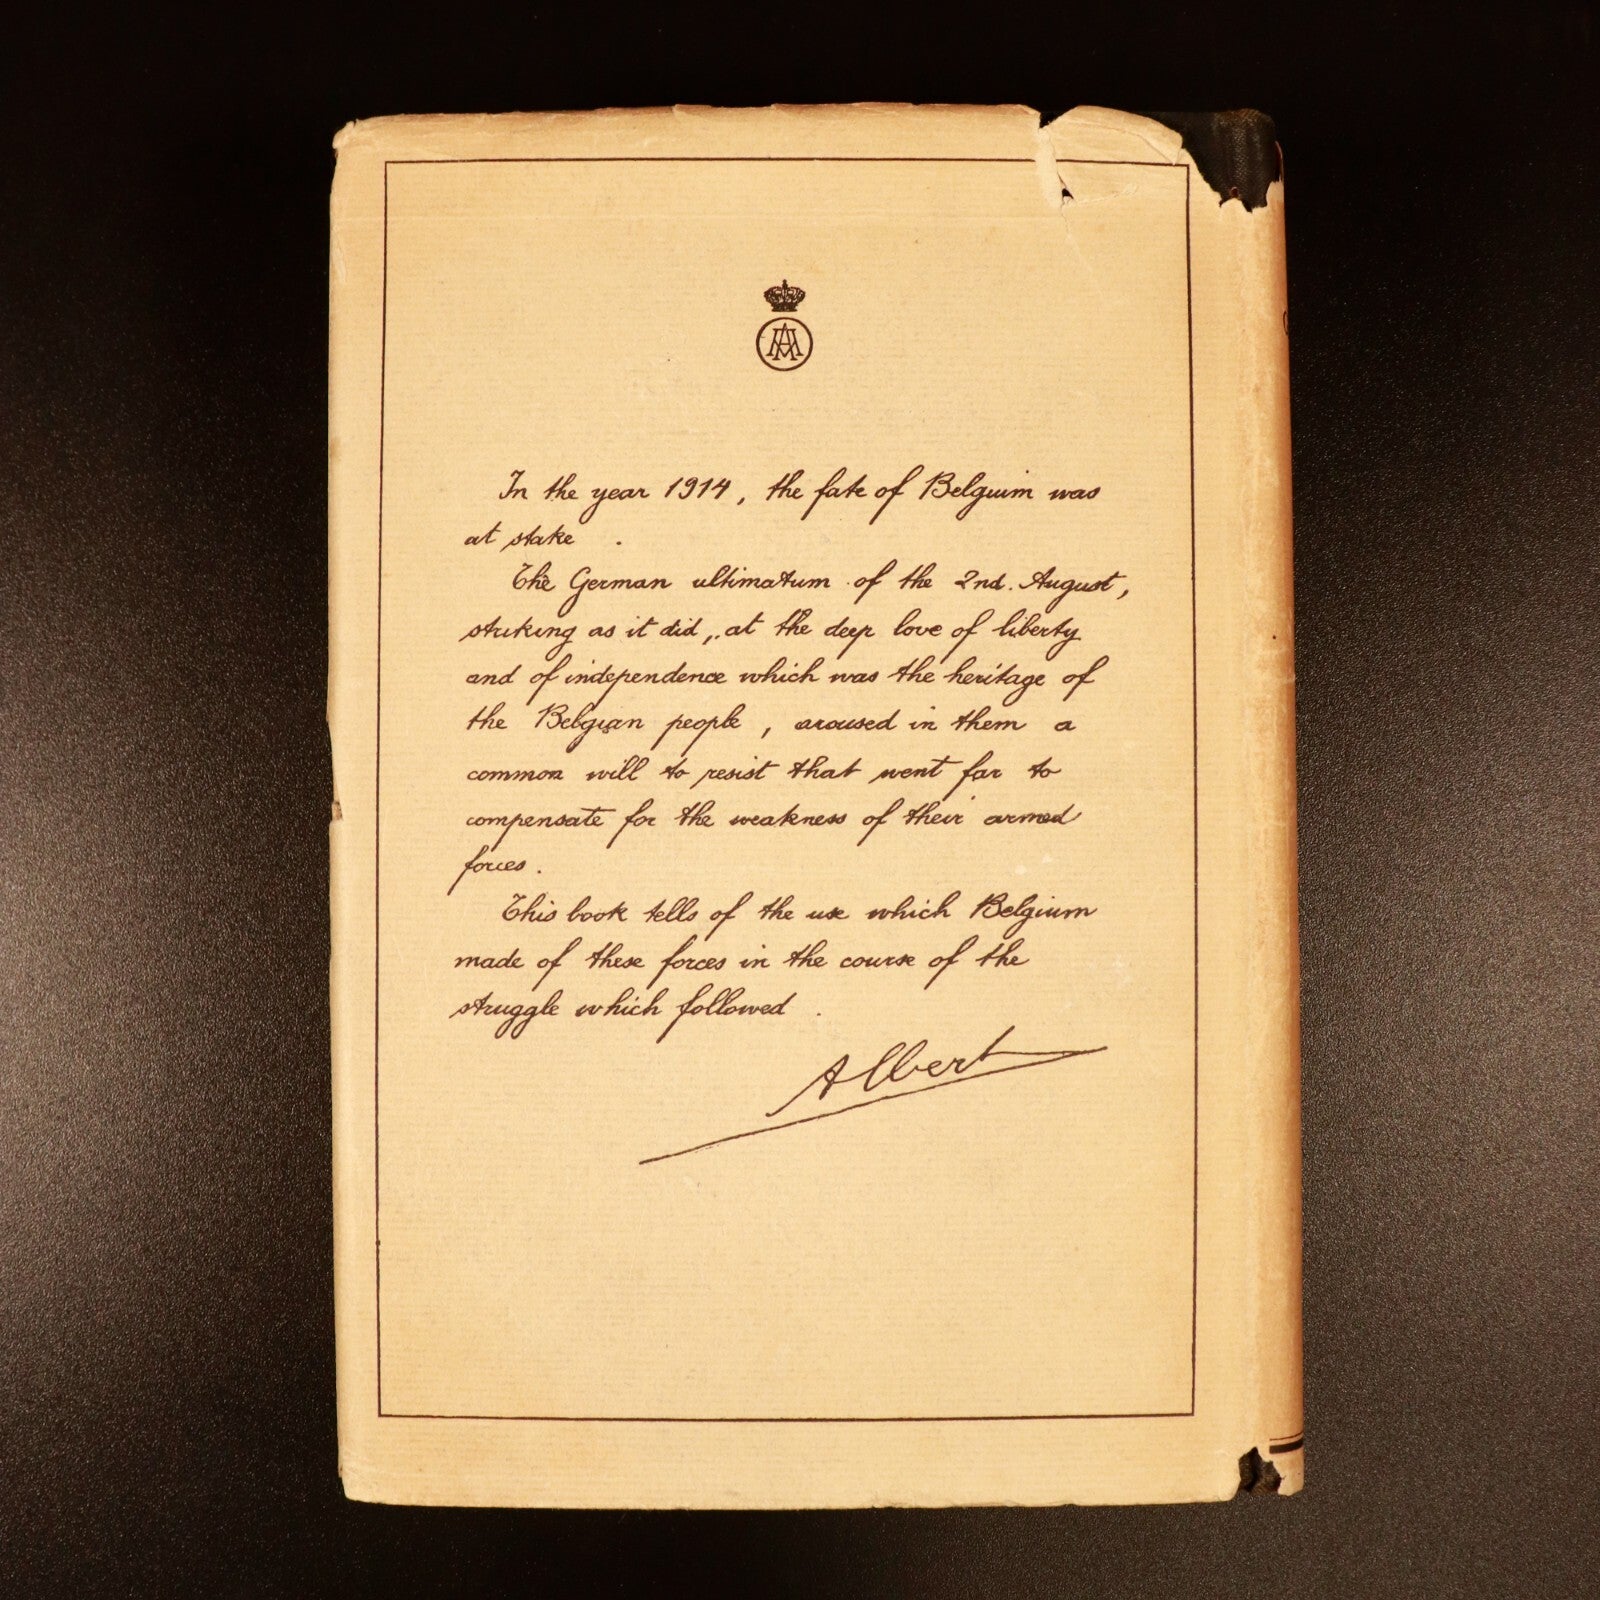 AA
In the year 1914, the fate of Belguim was
at stake .
The German ultimatum of the 2nd. August,
striking as it did, at the deep love of liberty
and of independence which was the heritage of
the Belgian people, aroused in them a
common will to resist that went far to
compensate for the weakness of their armed
forces.
This book tells of the use which Belgium
made of these forces in the course of the
struggle which followed .
Albert